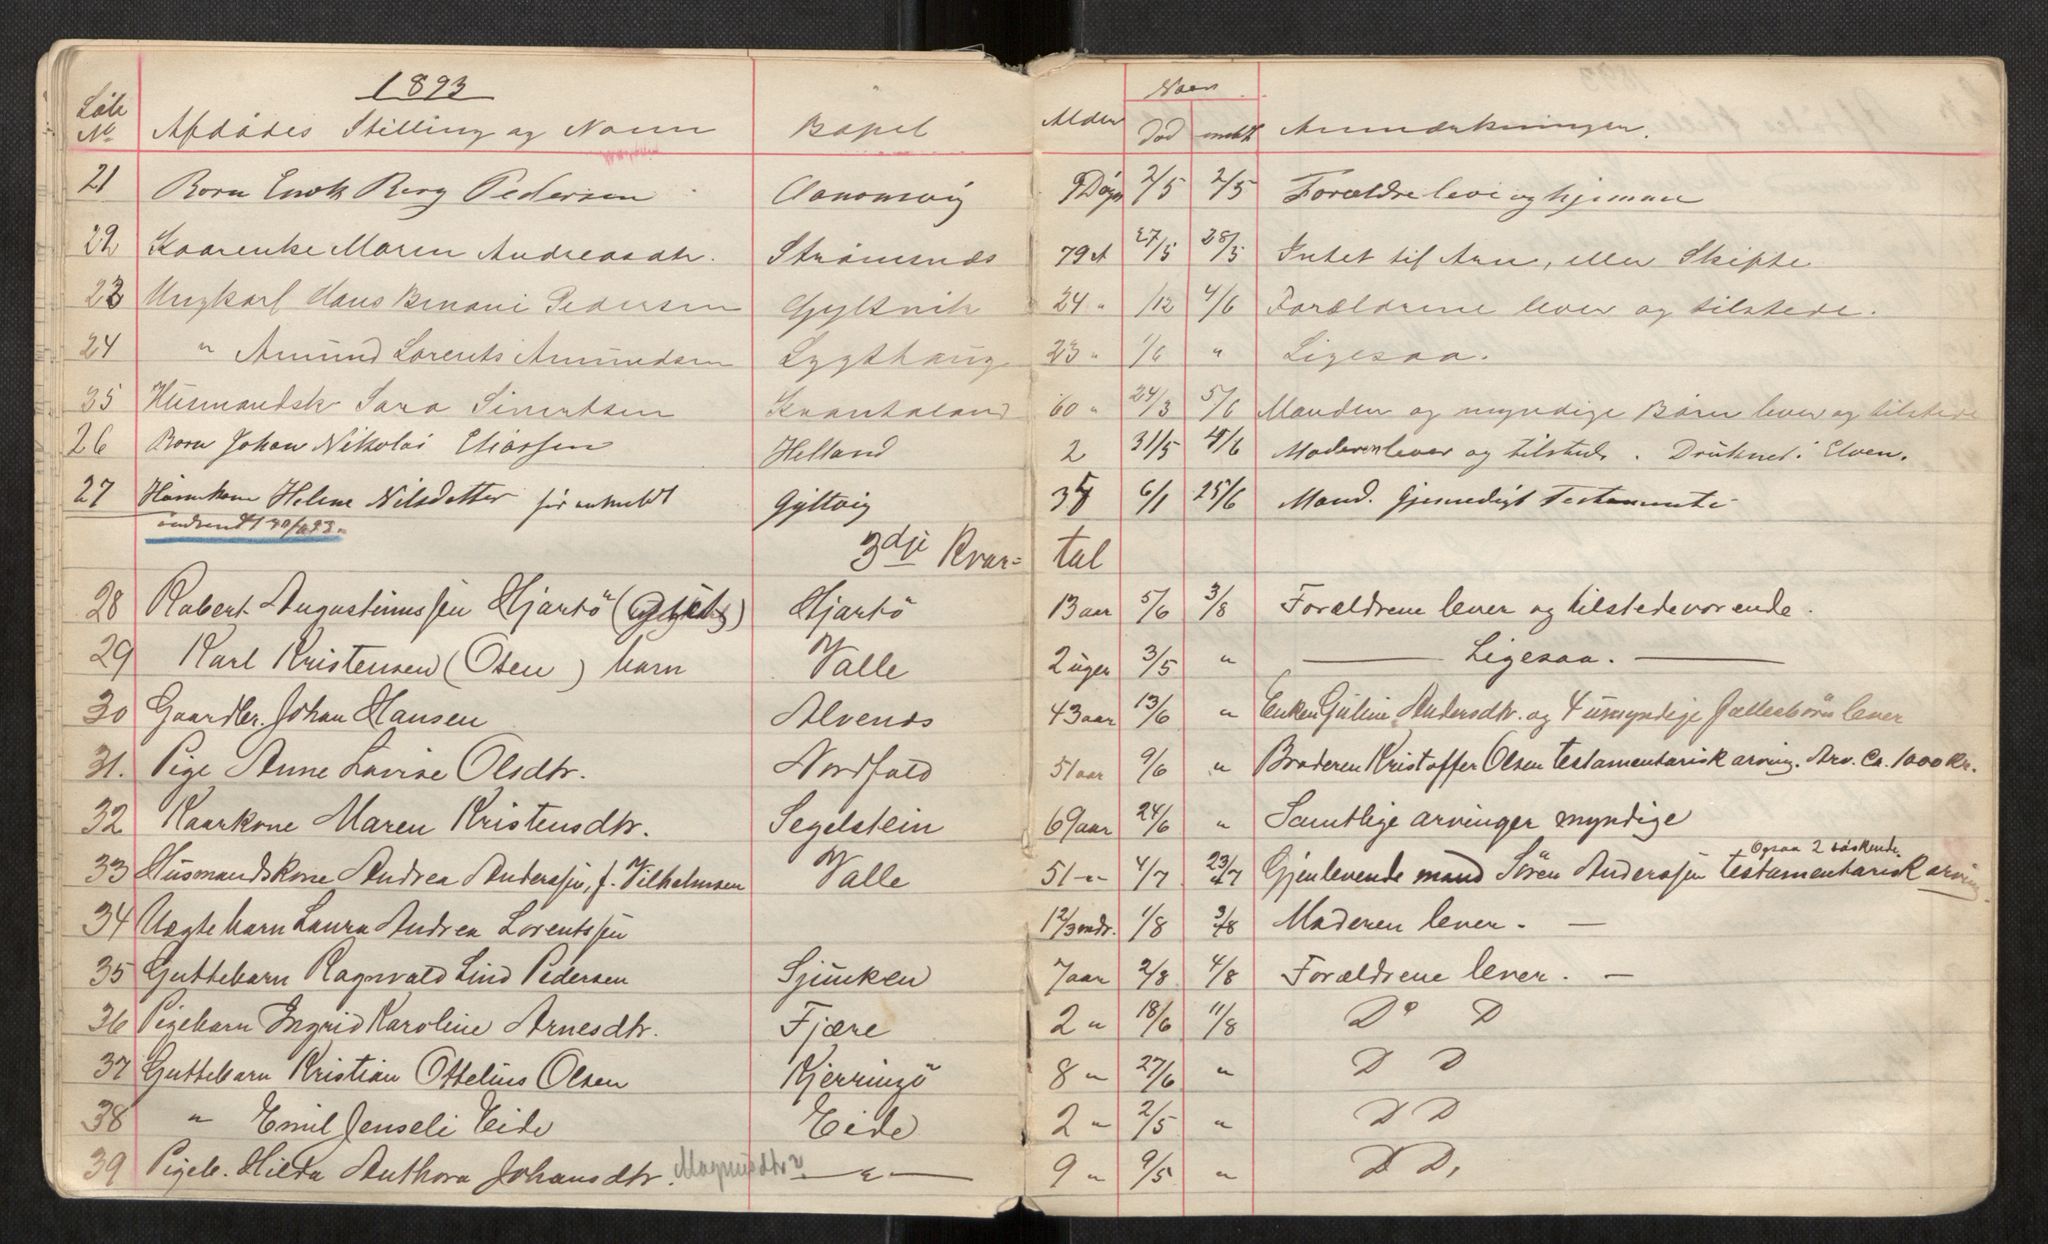 1893
Løbe No Afdødes Stilling og Navn Bopel Alder Naar død meldt Anmærkninger.
21 Barn Enok Berg Pedersen 9 Døgn 2/5 2/5 Forældre leve og hjemme
22 Kaarenke Maren Andreasdtr. Strømsnæs 79 A 27/5 28/5 Intet til Arv, eller Skifte
23 Ungkarl Hans Benoni Pedersen Gyltvik 24 " /12 4/6 Forældrene lever og tilstede.
24 " Amund Lorents Amundsen Lygthaug 23 " 1/6 " Ligesaa.
35 Husmandsk Sara Sivertsen Kvantoland 60 " 24/3 5/6 Manden og myndige Børn lever og tilstede
26 Barn Johan Nikolai Eliassen Helland 2 31/5 4/6 Moderen lever og tilstede. Druknet i Elven.
27 Helene Nilsdatter før anmeldt Gyltvig 6/1 25/6 Mand. Gjensidigt Testamente
indsendt
3dje Kvar= tal
28 Robert Augustinussen Hjartö Hjartö 13 aar 5/6 3/8 Forældrene lever og tilstedeværende.
29 Karl Kristensen (Osen) barn Valle 2 uger 3/5 " Ligesaa.
30 Gaardbr. Johan Hansen Alvenes 43 aar 13/6 " Enken Guline Andersdtr. og 4 umyndige Fællesbörn lever
31. Pige Anne Lavise Olsdtr. Nordfold 51 aar 9/6 " Broderen Kristoffer Olsen testamentarisk arving. Arv. ca. 1000 Kr.
32 Kaarkone Maren Kristensdtr. Segelstein 69 aar 24/6 " Samtlige arvinger myndige
Ogsaa 2 söskende.
33 Husmandskone Andrea Anderssen, f. Vilhelmsen Valle 51 " 4/7 23/7 Gjenlevende mand Sören Anderssen testamentarisk arving
34 Uægte barn Laura Andrea Lorentssen 1 2/3 mdr. 1/8 3/8 Moderen lever. —
35 Guttebarn Ragnvald Lind Pedersen Sjunken 7 aar 2/8 4/8 Forældrene lever. —
36 Pigebarn Ingrid Karoline Arnesdtr. Fjære 2 " 18/6 11/8 Do D
37 Guttebarn Kristian Ottelius Olsen Kjerringö 8 " 27/6 " D D
38 " Emil Jenseli Eide Eide 2 " 2/5 " D D
39 Pigeb. Hilda Anthora Johansdtr. Magnusdtr? — " — 9 " 9/5 " D D,